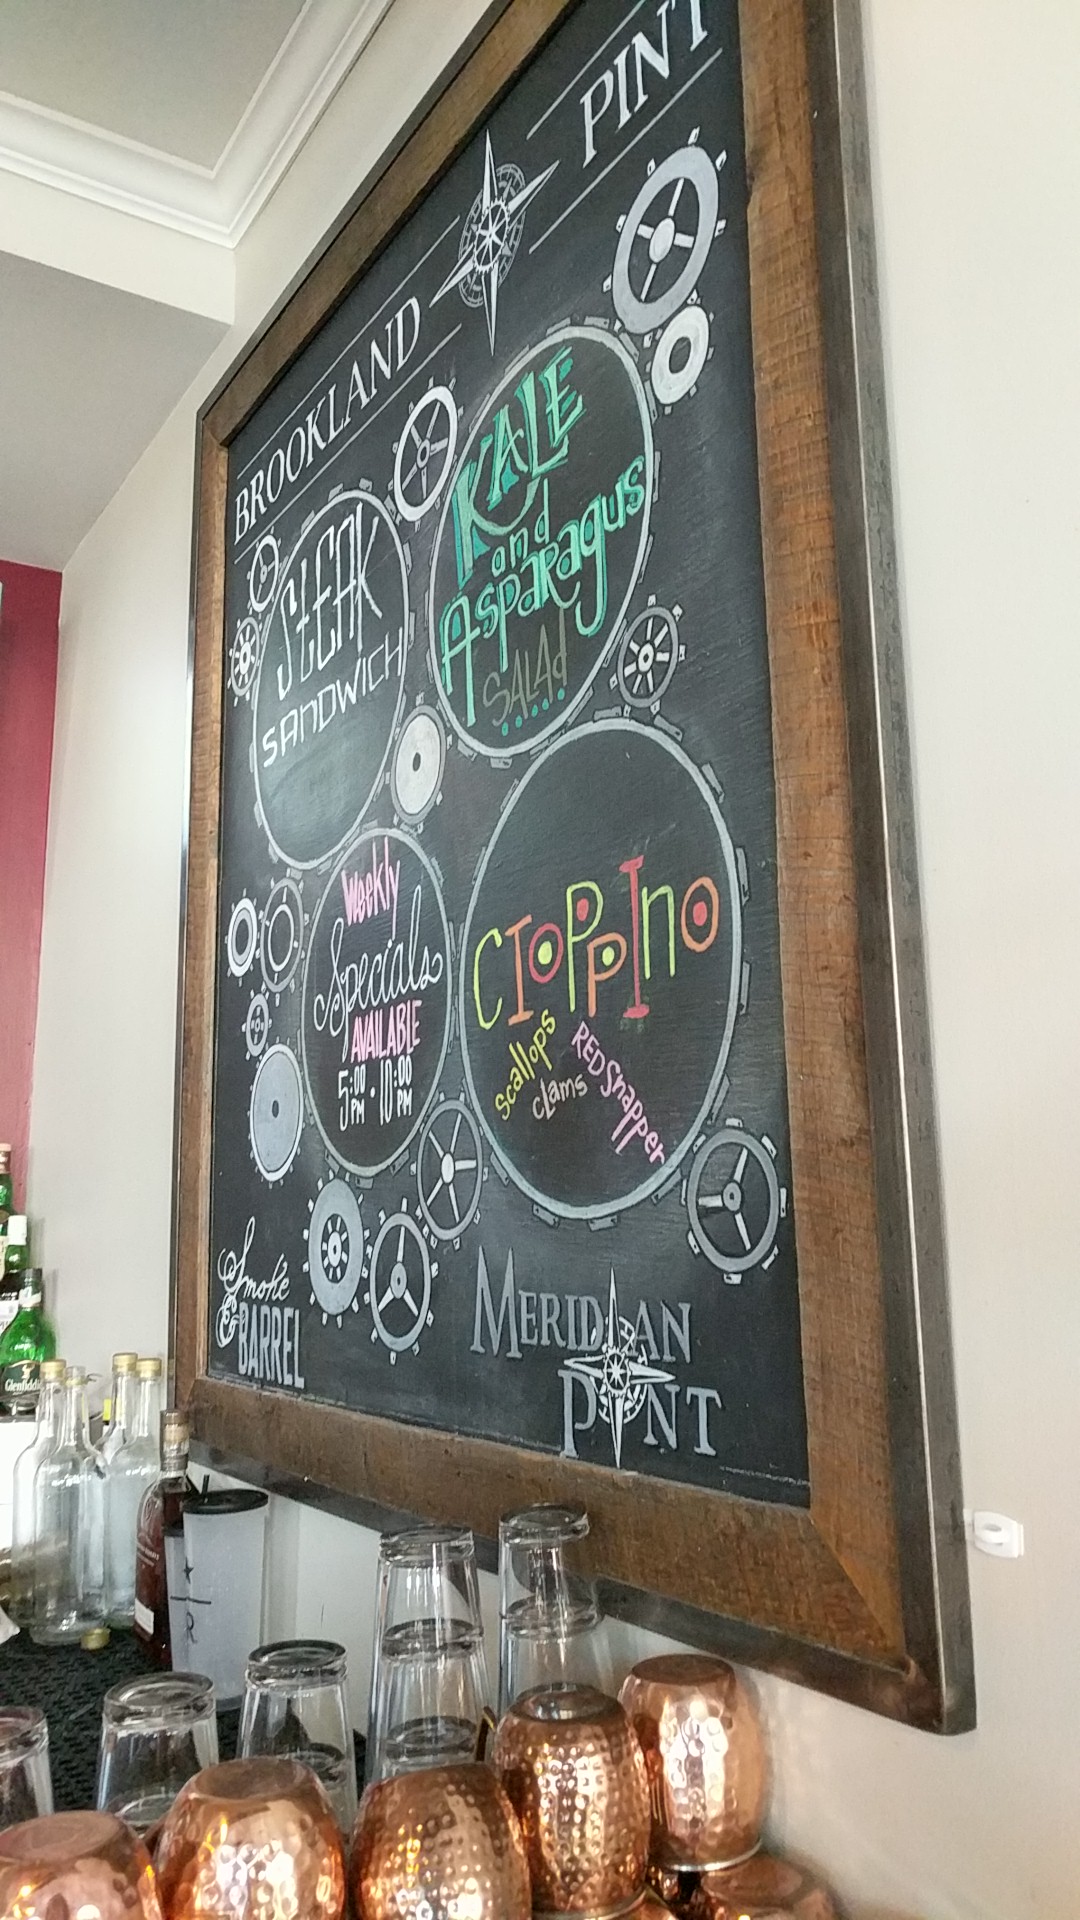 BROOKLAND PINT
STEAK
SANDWICH
KALE
and
Asparagus
SALAd
Weekly
Specials
AVAILABLE
5:00 PM · 10:00 PM
CIOPPINO
scallops
clams
RED Snapper
Smoke
& BARREL
MERIDIAN
PINT
Glenfiddic
R